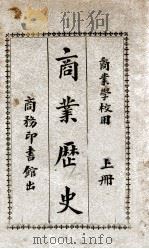 商業學校用
上册
商業歷史
商務印書館出
www.shuge.com